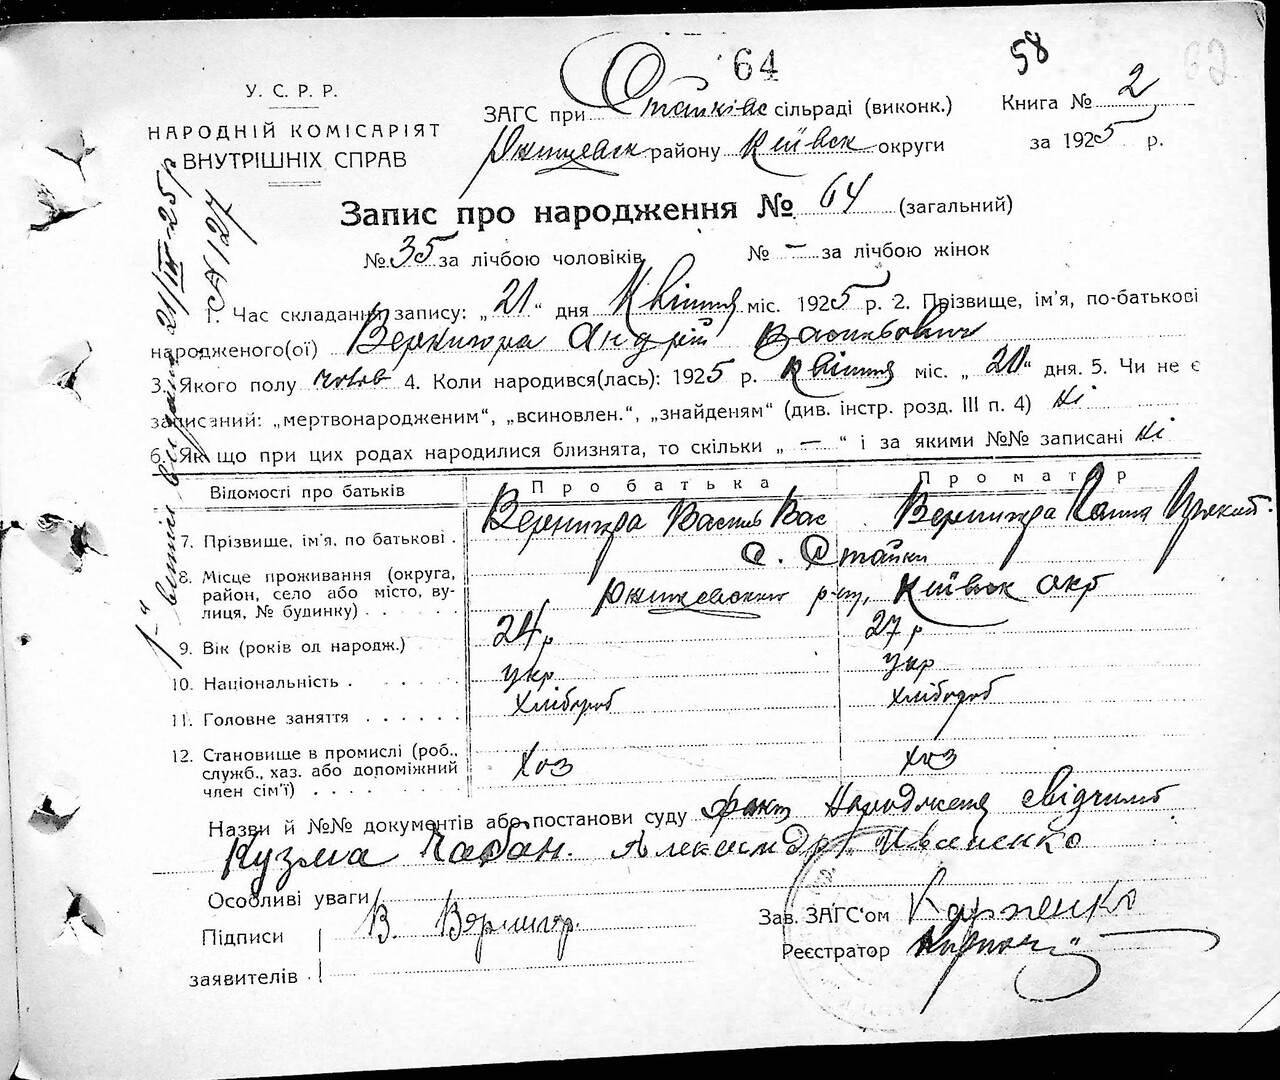 64 58 62
У. С. Р. Р.
НАРОДНІЙ КОМІСАРІЯТ
ВНУТРІШНІХ СПРАВ
ЗАГС при Стайківс сільраді (виконк.)
Книга № 2
Ржищевск району Київск округи
за 1925 р.
Запис про народження № 64 (загальний)
№ 35 за лічбою чоловіків № — за лічбою жінок
1. Час складання запису: „21“ дня Квітня міс. 1925 р. 2. Прізвище, ім'я, по-батькові
народженого(ої) Вернигора Андрій Васильович
3. Якого полу чолов 4. Коли народився(лась): 1925 р. Квітня міс. „20“ дня. 5. Чи не є
записаний: „мертвонародженим“, „всиновлен.“, „знайденям“ (див. інстр. розд. III п. 4) ні
6. Якщо при цих родах народилися близнята, то скільки „—“ і за якими №№ записані ні
Відомості про батьків Про батька Про матір
7. Прізвище, ім'я, по батькові . Вернигора Василь Вас Вернигора Ганна
8. Місце проживання (округа, район, село або місто, вулиця, № будинку) . . . . с. Стайки
Ржищевского р-ну, Київск окр
9. Вік (років од народж.) 24 р 27 р
10. Національність . . . . . укр укр
11. Головне заняття . . . . . . хлібороб хлібороб
12. Становище в промислі (роб., служб., хаз. або допоміжний член сім'ї) . . . . . . . хоз хоз
Назви й №№ документів або постанови суду факт народження свідчимо
Кузма Чабан. Александр Иваненко
Особливі уваги
Підписи В. Вернигор.
заявителів
Зав. ЗАГС'ом Карпенко
Реєстратор
1-й витяг видано 21/IV-25 р